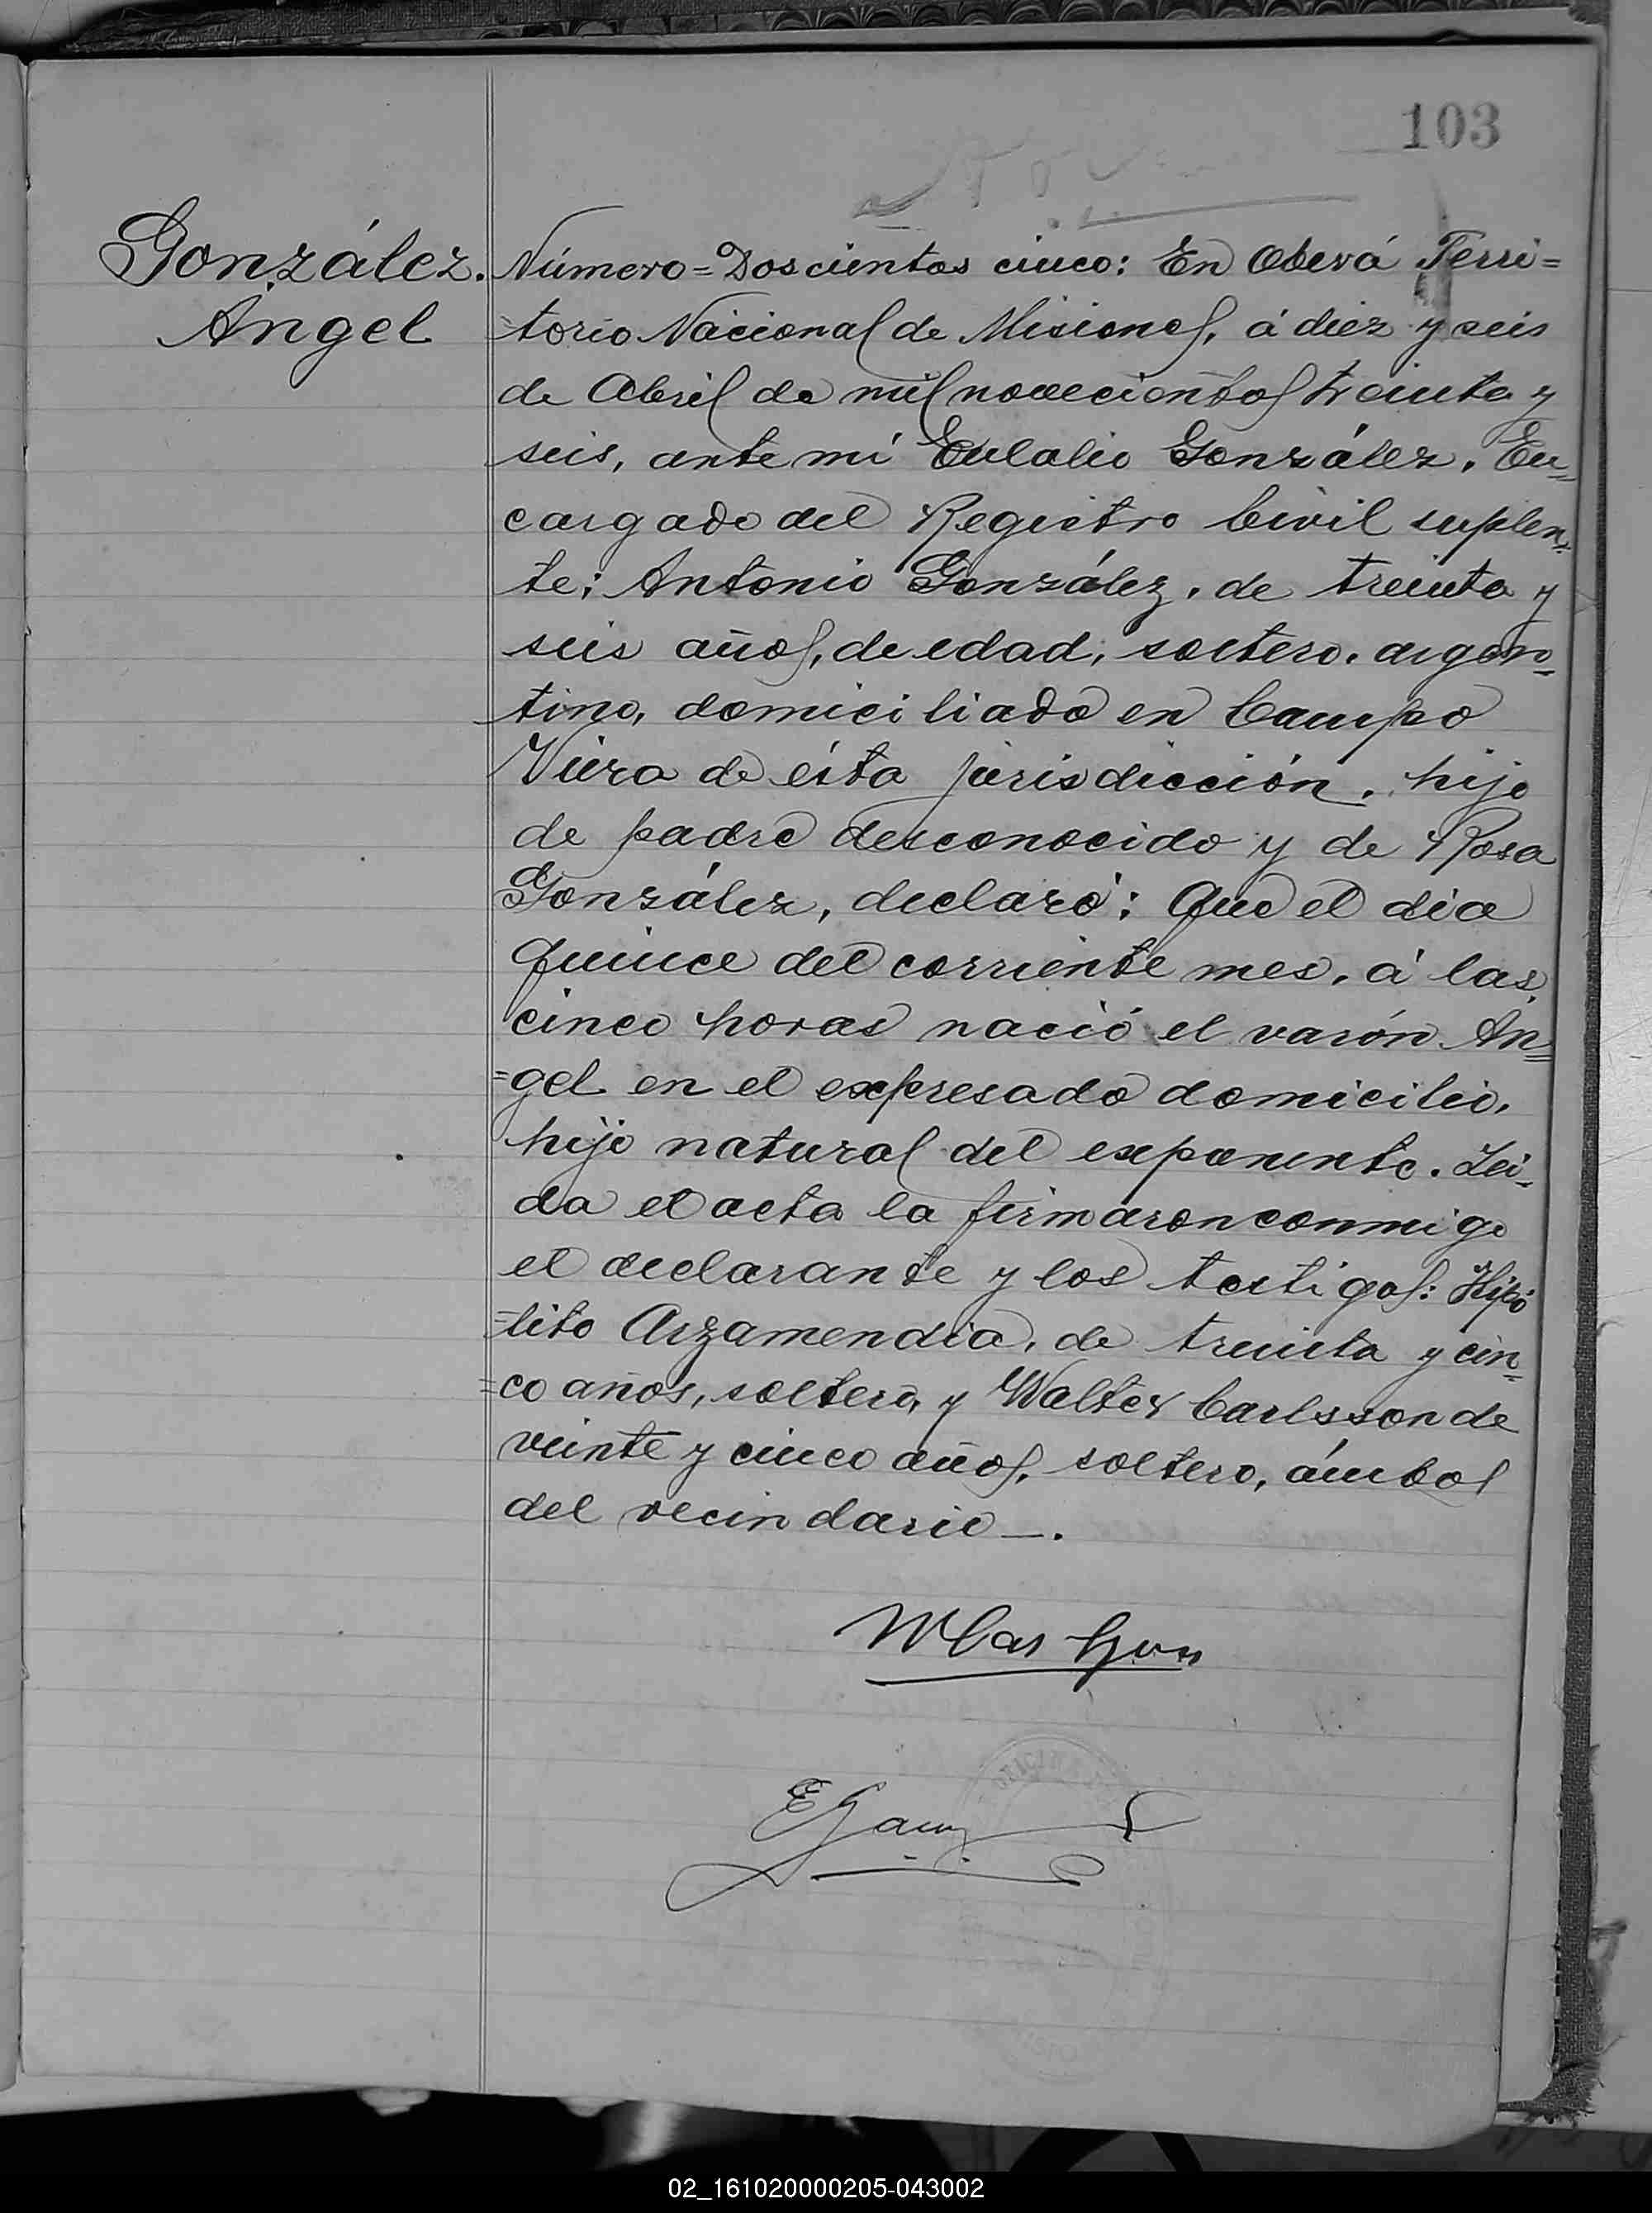 103
González.
Angel
Número=Doscientos cinco: En Oberá Terri=
=torio Nacional de Misiones, á diez y seis
de Abril de mil novecientos treinta y
seis, ante mí Eulalio González, En=
cargado del Registro Civil suplen=
te; Antonio González, de treinta y
seis años, de edad, soltero, argen=
tino, domiciliado en Campo
Viera de ésta jurisdicción, hijo
de padre desconocido y de Rosa
González, declaró: Que el día
quince del corriente mes, á las
cinco horas nació el varón An=
=gel en el expresado domicilio,
hijo natural del exponente. Lei=
da el acta la firmaron conmigo
el declarante y los testigos: Hipó
=lito Arzamendia, de treinta y cin=
=co años, soltero, y Walter Carlsson de
veinte y cinco años, soltero, ámbos
del vecindario—.
02_161020000205-043002